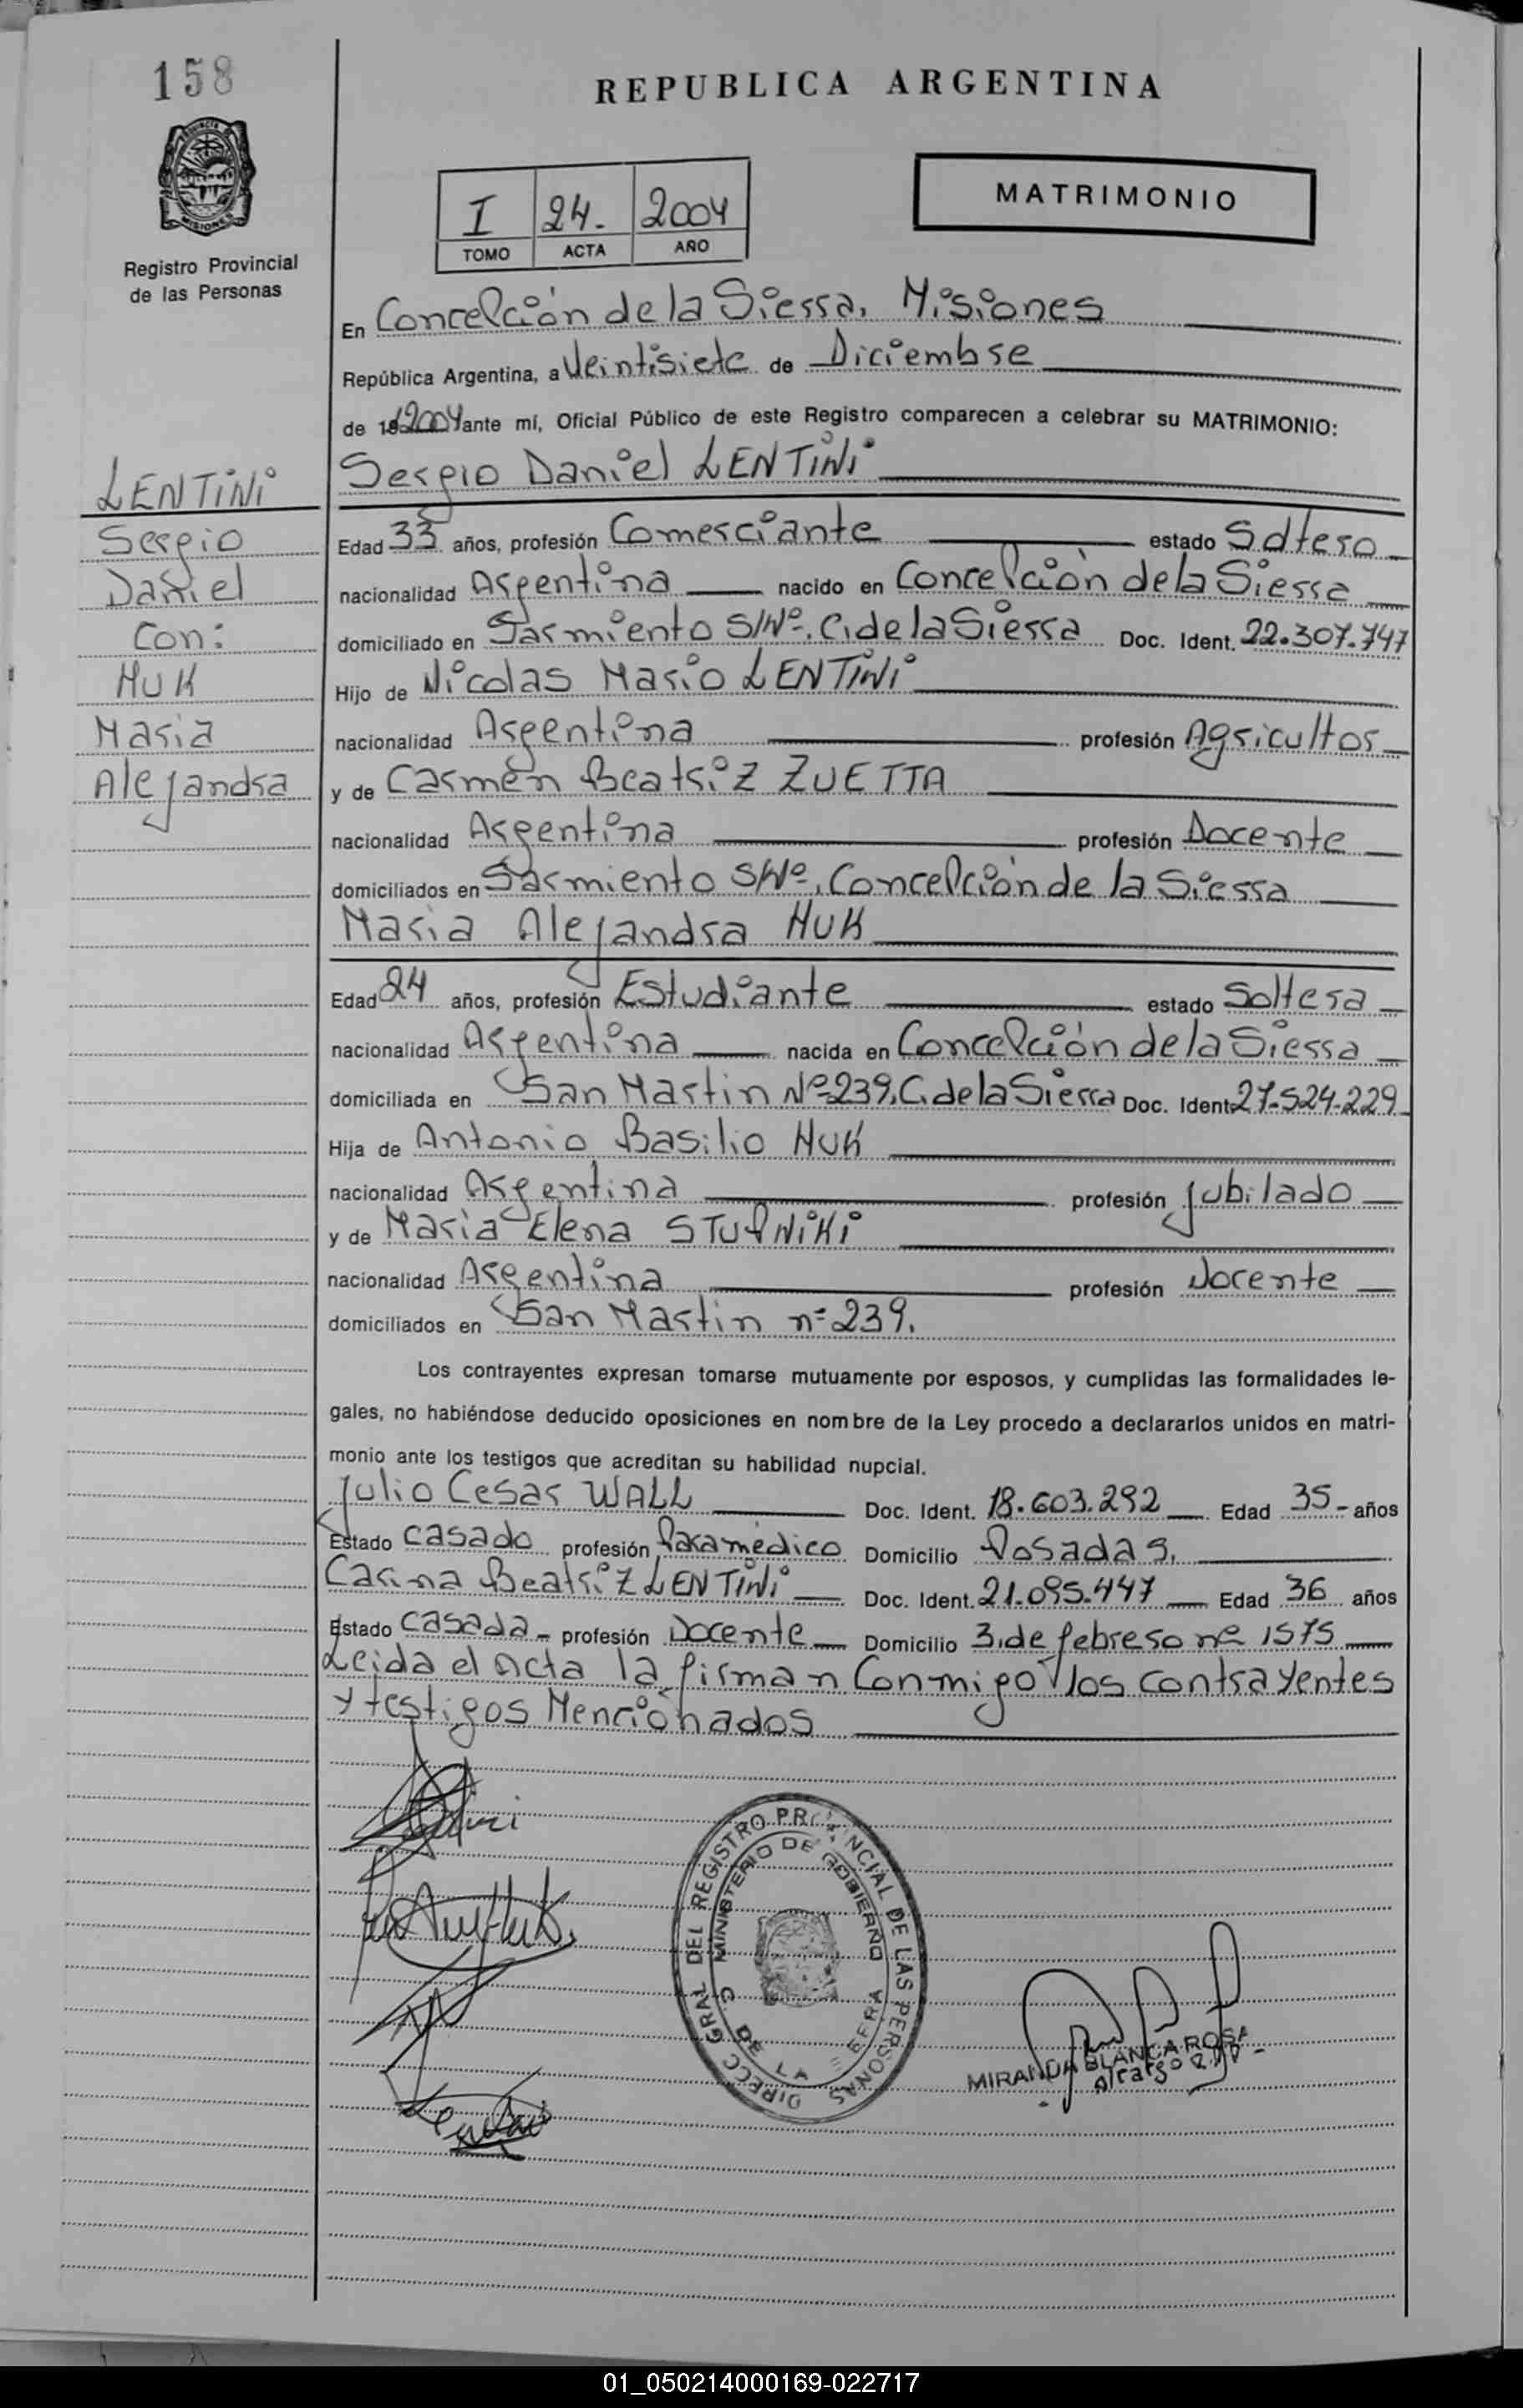 158
REPUBLICA ARGENTINA
PROVINCIA DE
MISIONES
Registro Provincial
de las Personas
I 24. 2004
TOMO ACTA AÑO
MATRIMONIO
En Concepción de la Sierra, Misiones
República Argentina, a Veintisiete de Diciembre
de 19 2004 ante mí, Oficial Público de este Registro comparecen a celebrar su MATRIMONIO:
LENTINI
Sergio
Daniel
Con:
HUK
Maria
Alejandra
Sergio Daniel LENTINI
Edad 33 años, profesión Comerciante estado Soltero
nacionalidad Argentina nacido en Concepción de la Sierra
domiciliado en Sarmiento S/Nº, C. de la Sierra Doc. Ident. 22.307.747
Hijo de Nicolas Mario LENTINI
nacionalidad Argentina profesión Agricultor
y de Carmen Beatriz ZUETTA
nacionalidad Argentina profesión Docente
domiciliados en Sarmiento S/Nº, Concepción de la Sierra
Maria Alejandra HUK
Edad 24 años, profesión Estudiante estado Soltera
nacionalidad Argentina nacida en Concepción de la Sierra
domiciliada en San Martin Nº 239, C. de la Sierra Doc. Ident. 27.524.229
Hija de Antonio Basilio HUK
nacionalidad Argentina profesión jubilado
y de Maria Elena STUPNIKI
nacionalidad Argentina profesión Docente
domiciliados en San Martin nº 239.
Los contrayentes expresan tomarse mutuamente por esposos, y cumplidas las formalidades le-
gales, no habiéndose deducido oposiciones en nombre de la Ley procedo a declararlos unidos en matri-
monio ante los testigos que acreditan su habilidad nupcial.
Julio Cesar WALL Doc. Ident. 18.603.292 Edad 35 años
Estado casado profesión Paramédico Domicilio Posadas,
Carina Beatriz LENTINI Doc. Ident. 21.095.447 Edad 36 años
Estado casada profesión Docente Domicilio 3, de febrero nº 1575
Leida el acta la firman conmigo los contrayentes
y testigos Mencionados
DIRECC GRAL DEL REGISTRO PROVINCIAL DE LAS PERSONAS
MINISTERIO DE GOBIERNO
C. DE LA
MIRANDA BLANCA ROSA
A/cargo
01_050214000169-022717